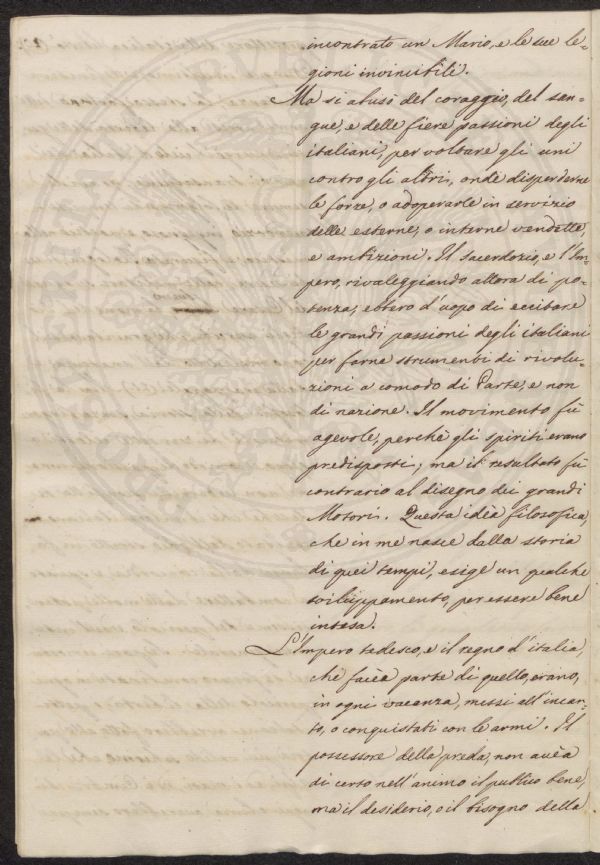 incontrato un Mario, e le sue le-
gioni invincibili.
Ma si abusò del coraggio, del san-
gue, e delle fiere passioni degli
italiani, per voltare gli uni
contro gli altri, onde disperderne
le forze, o adoperarle in servizio
delle esterne, o interne vendette,
e ambizioni. Il Sacerdozio, e l'Im-
pero, rivaleggiando allora di po-
tenza, ebbero d'uopo di eccitare
le grandi passioni degli italiani
per farne strumenti di rivolu-
zioni a comodo di Parte, e non
di nazione. Il movimento fù
agevole, perchè gli spiriti erano
predisposti; ma il resultato fù
contrario al disegno dei grandi
Motori. Questa idèa filosofica,
che in me nasce dalla storia
di quei tempi, esige un qualche
sviluppamento, per essere bene
intesa.
L'Impero tedesco, e il regno d'italia,
che facèa parte di quello, erano,
in ogni vacanza, messi all'incan-
to, o conquistati con le armi. Il
possessore della preda, non avèa
di certo nell'animo il publico bene,
ma il desiderio, o il bisogno della